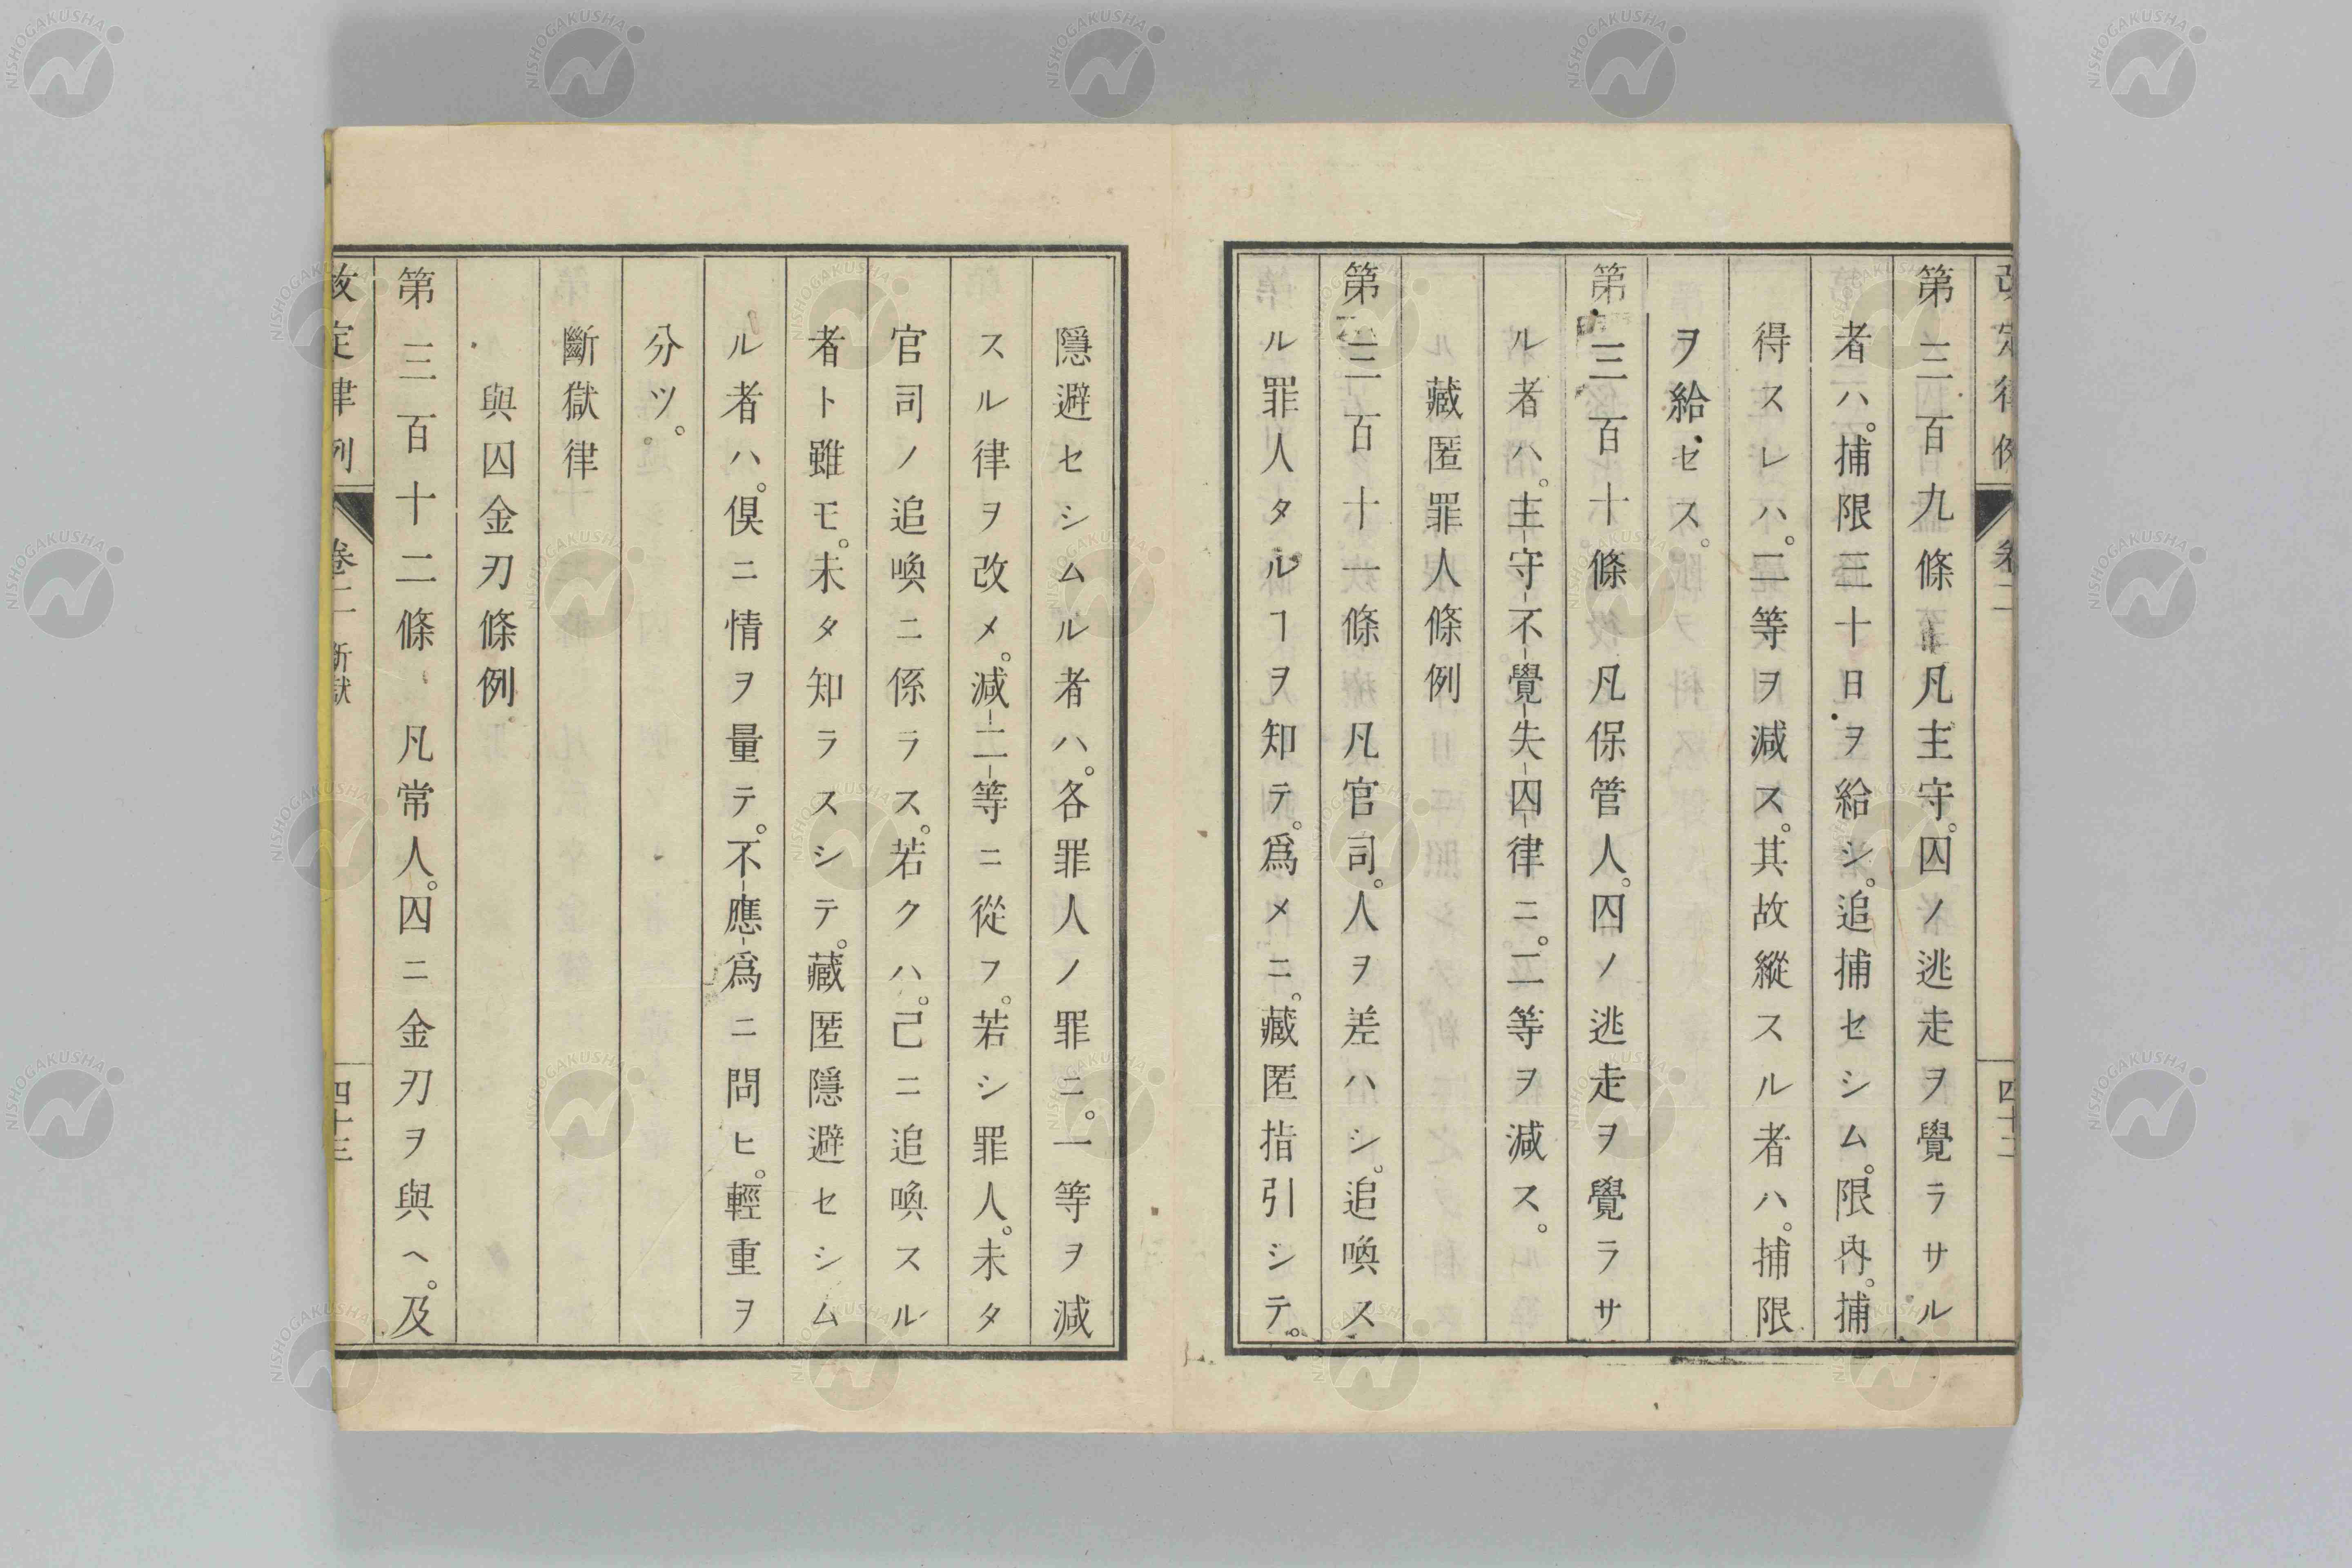 第三百九條 凡主守。囚ノ逃走ヲ覺ラサル
者ハ。捕限三十日ヲ給シ。追捕セシム。限內。捕
得スレハ。二等ヲ減ス。其故縱スル者ハ。捕限
ヲ給セス。
第三百十條 凡保管人。囚ノ逃走ヲ覺ラサ
ル者ハ。主守不覺失囚律ニ。二等ヲ減ス。
藏匿罪人條例
第三百十一條 凡官司。人ヲ差ハシ。追喚ス
ル罪人タルヿヲ知テ。爲メニ。藏匿指引シテ。
隱避セシムル者ハ。各罪人ノ罪ニ。一等ヲ減
スル律ヲ改メ。減二等ニ從フ。若シ罪人。未タ
官司ノ追喚ニ係ラス。若クハ。己ニ追喚スル
者ト雖モ。未タ知ラスシテ。藏匿隱避セシム
ル者ハ。俱ニ情ヲ量テ。不應爲ニ問ヒ。輕重ヲ
分ツ。
斷獄律
與囚金刃條例
第三百十二條 凡常人。囚ニ金刃ヲ與ヘ。及
改定律例 卷二 斷獄 四十三
NISHOGAKUSHA